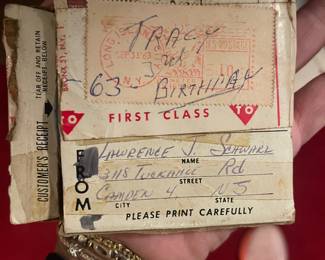 TEAR OFF AND RETAIN
RECEIPT BELOW
CUSTOMER'S RECEIPT
BRONX N.Y.
TRACY
3rd
-63-
BIRTHDAY
TO
FIRST CLASS
TO
FROM
LAWRENCE J. SCHWARZ
NAME
Rd
STREET
CAMDEN 4 NJ
CITY STATE
PLEASE PRINT CAREFULLY